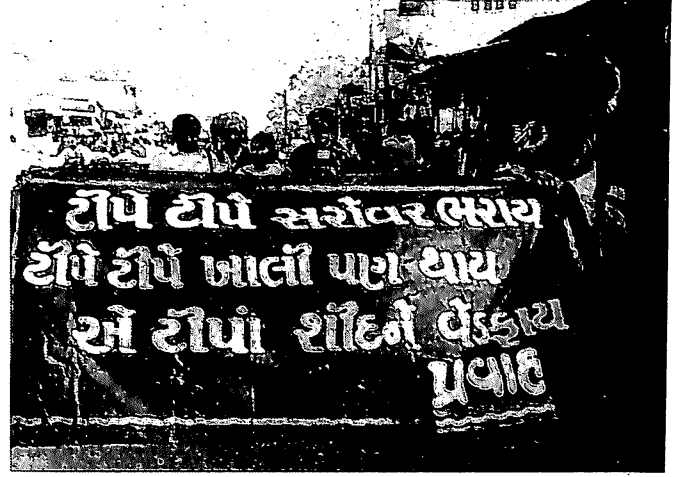 ટીપે ટીપે સરોવર ભરાય
ટીપે ટીપે ખાલી પણ થાય
એ ટીપાં શીદને વેડફાય
પ્રવાહ